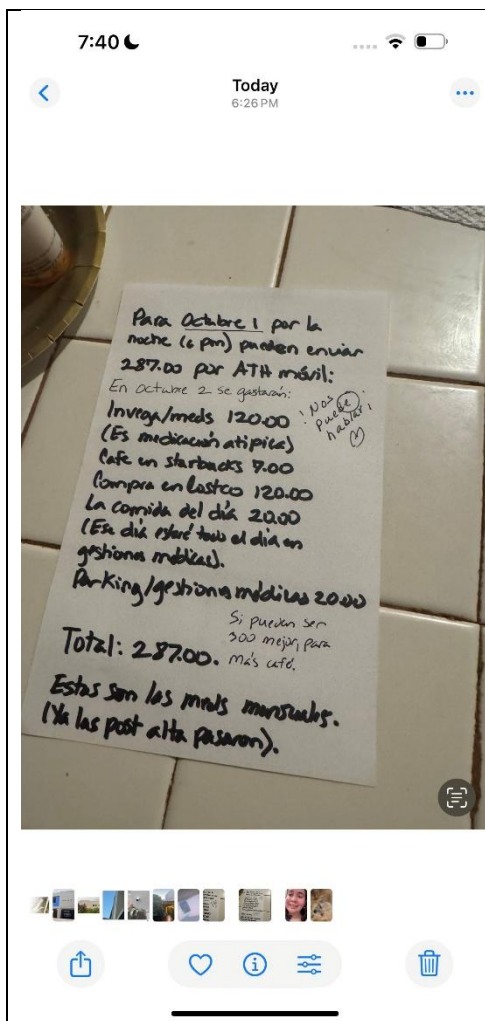 7:40
Today
6:26 PM
Para Octubre 1 por la
noche (6 pm) pueden enviar
287.00 por ATH móvil:
En octubre 2 se gastarán:
Invega/meds 120.00
(Es medicación atipica)
Cafe en starbucks 7.00
Compra en Costco 120.00
La comida del día 20.00
(Ese día estaré todo el día en
gestiones médicas).
Parking/gestiones médicas 20.00
¡Nos
puede
hablar!
Si pueden ser
300 mejor, para
más café.
Total: 287.00.
Estas son las meds mensuales.
(Ya las post alta pasaron).